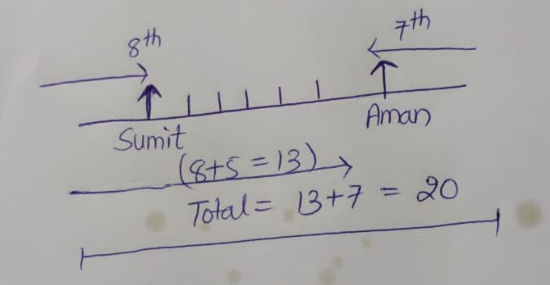 8th 7th
Sumit Aman
(8+5 = 13)
Total = 13+7 = 20